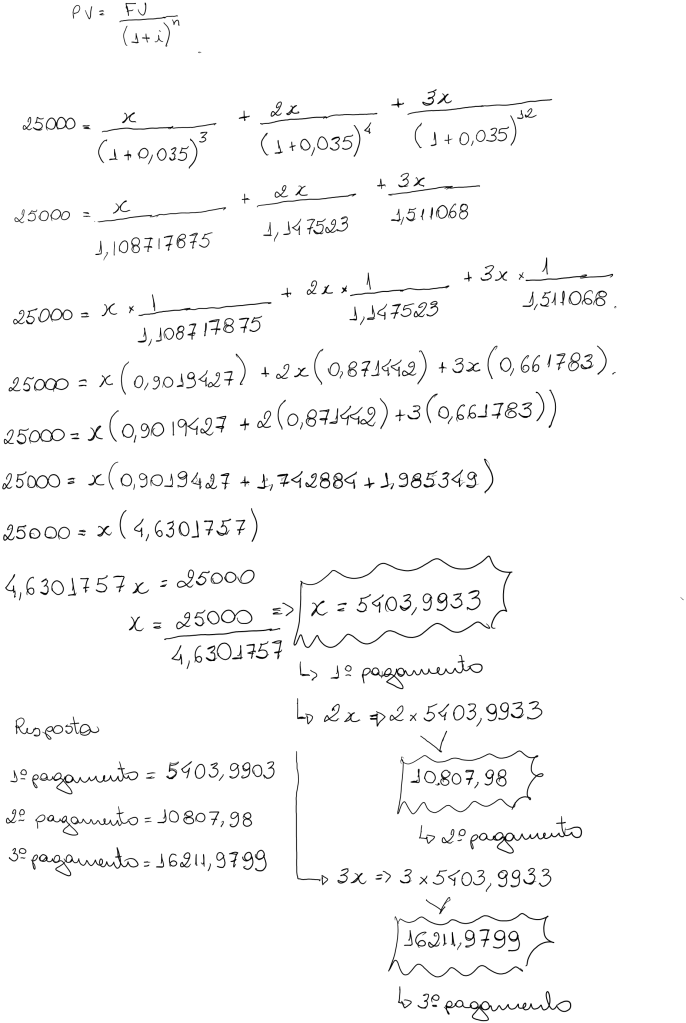 PV = FV / (1+i)^n
25000 = x / (1+0,035)^3 + 2x / (1+0,035)^4 + 3x / (1+0,035)^12
25000 = x / 1,108717875 + 2x / 1,147523 + 3x / 1,511068
25000 = x × 1 / 1,108717875 + 2x × 1 / 1,147523 + 3x × 1 / 1,511068.
25000 = x(0,9019427) + 2x(0,871442) + 3x(0,661783).
25000 = x(0,9019427 + 2(0,871442) + 3(0,661783))
25000 = x(0,9019427 + 1,742884 + 1,985349)
25000 = x(4,6301757)
4,6301757x = 25000
x = 25000 / 4,6301757 => x = 5403,9933
↳ 1º pagamento
↳ 2x => 2 × 5403,9933
10.807,98
↳ 2º pagamento
↳ 3x => 3 × 5403,9933
16211,9799
↳ 3º pagamento
Resposta
1º pagamento = 5403,9903
2º pagamento = 10807,98
3º pagamento = 16211,9799